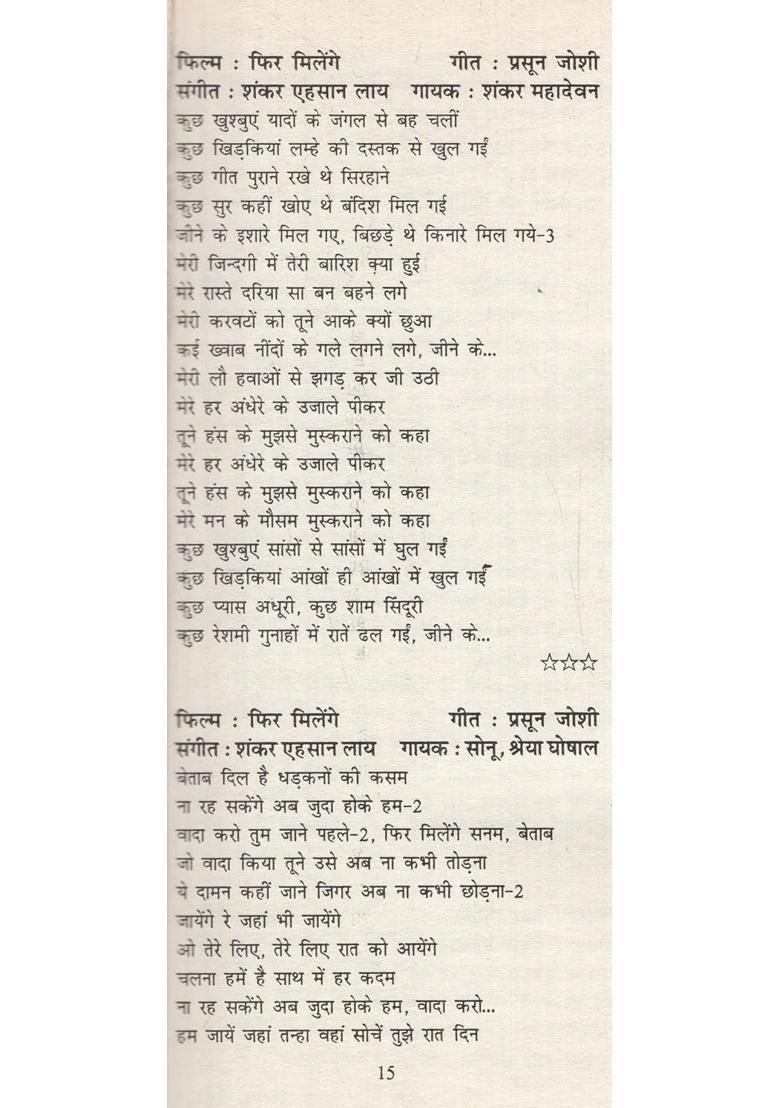 फिल्म : फिर मिलेंगे गीत : प्रसून जोशी
संगीत : शंकर एहसान लाय गायक : शंकर महादेवन
कुछ खुश्बुएं यादों के जंगल से बह चलीं
कुछ खिड़कियां लम्हे की दस्तक से खुल गईं
कुछ गीत पुराने रखे थे सिरहाने
कुछ सुर कहीं खोए थे बंदिश मिल गई
जीने के इशारे मिल गए, बिछड़े थे किनारे मिल गये-3
मेरी जिन्दगी में तेरी बारिश क्या हुई
मेरे रास्ते दरिया सा बन बहने लगे
मेरी करवटों को तूने आके क्यों छुआ
कई ख्वाब नींदों के गले लगने लगे, जीने के...
मेरी लौ हवाओं से झगड़ कर जी उठी
मेरे हर अंधेरे के उजाले पीकर
तूने हंस के मुझसे मुस्कराने को कहा
मेरे हर अंधेरे के उजाले पीकर
तूने हंस के मुझसे मुस्कराने को कहा
मेरे मन के मौसम मुस्कराने को कहा
कुछ खुश्बुएं सांसों से सांसों में घुल गईं
कुछ खिड़कियां आंखों ही आंखों में खुल गईं
कुछ प्यास अधूरी, कुछ शाम सिंदूरी
कुछ रेशमी गुनाहों में रातें ढल गईं, जीने के...
☆☆☆
फिल्म : फिर मिलेंगे गीत : प्रसून जोशी
संगीत : शंकर एहसान लाय गायक : सोनू, श्रेया घोषाल
बेताब दिल है धड़कनों की कसम
ना रह सकेंगे अब जुदा होके हम-2
वादा करो तुम जाने पहले-2, फिर मिलेंगे सनम, बेताब
जो वादा किया तूने उसे अब ना कभी तोड़ना
ये दामन कहीं जाने जिगर अब ना कभी छोड़ना-2
जायेंगे रे जहां भी जायेंगे
ओ तेरे लिए, तेरे लिए रात को आयेंगे
चलना हमें है साथ में हर कदम
ना रह सकेंगे अब जुदा होके हम, वादा करो...
हम जायें जहां तन्हा वहां सोचें तुझे रात दिन
15